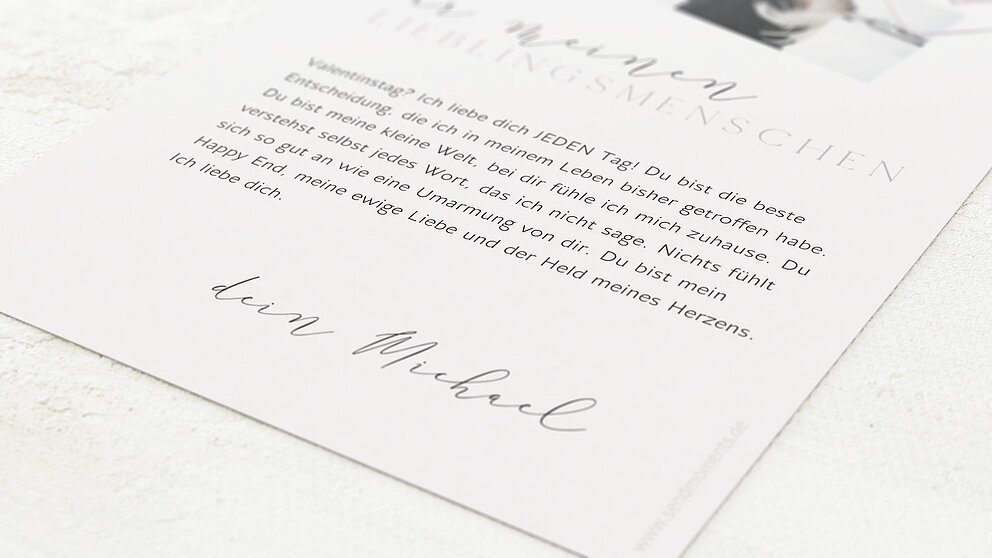 meinen
LIEBLINGSMENSCHEN
Valentinstag? Ich liebe dich JEDEN Tag! Du bist die beste
Entscheidung, die ich in meinem Leben bisher getroffen habe.
Du bist meine kleine Welt, bei dir fühle ich mich zuhause. Du
verstehst selbst jedes Wort, das ich nicht sage. Nichts fühlt
sich so gut an wie eine Umarmung von dir. Du bist mein
Happy End, meine ewige Liebe und der Held meines Herzens.
Ich liebe dich.
dein Michael
www.sendmoments.de